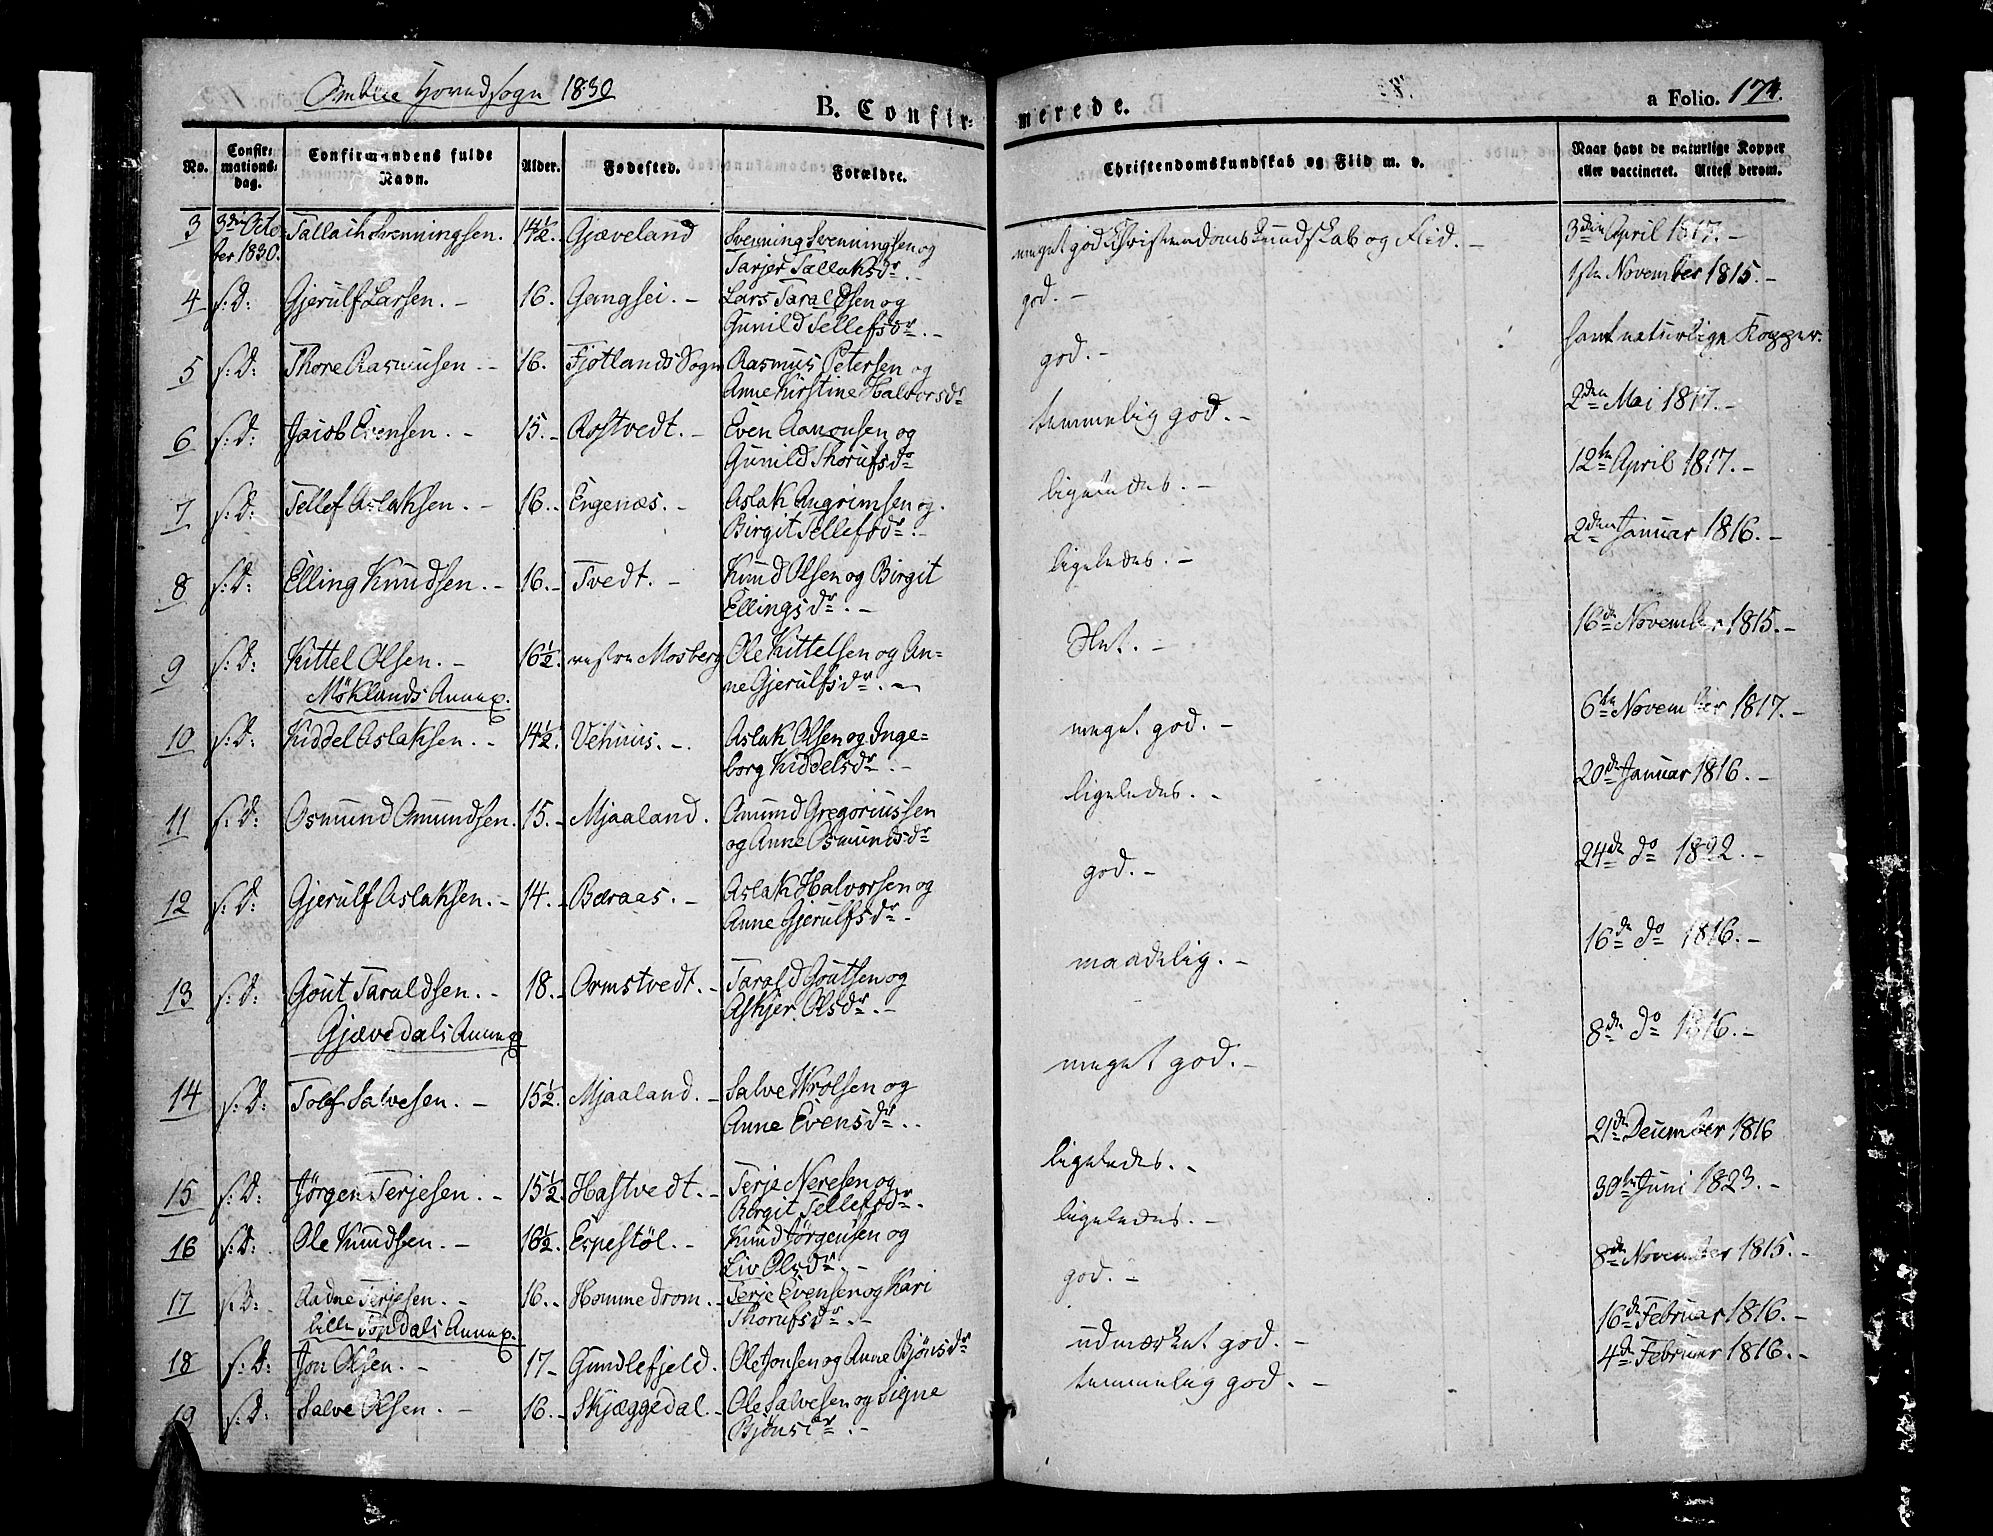 Omblie Hovedsogn 1830
B. Confir-
merede.
a Folio. 174.
No. Confir-mations-dag. Confirmandens fulde Navn. Alder. Fødested. Forældre. Christendomskundskab og Flid m. v. Naar havt de naturlige Kopper eller vaccineret. Attest derom.
3 3die Octo- Tallach Svenningsen. 14½. Gjæveland Svenning Svenningsen og meget god Christendomskundskab og Flid. - 3die April 1817. -
ber 1830. Tarjer Tallaksdr. -
4 s: D: Gjerulf Larsen. - 16. Gangsei. - Lars Taraldsen og god. - 1ste November 1815. -
Gunild Tellefsdr. -
5 s: D: Thore Rasmusen. - 16. Fjotlands Sogn Rasmus Petersen og god. - havt naturlige Kopper.
Anne Kirstine Halvorsdr
6 s: D: Jacob Evensen. - 15. - Rostvedt. - Even Aanonsen og temmelig god. - 2den Mai 1817. -
Gunild Thorufsdr
7 s: D: Tellef Aslaksen. - 16. - Engenæs. - Aslak Angrimsen og ligeledes. - 12te April 1817. -
Birgit Tellefsdr. -
8 s: D: Elling Knudsen. - 16. - Tvedt. - Knud Olsen og Birgit ligeledes. - 2den Januar 1816. -
Ellingsdr. -
9 s: D: Kittel Olsen. - 16½. vestre Mosberg Ole Kittelsen og An- Slet. - 16de November 1815. -
Møklands Annex. ne Gjerulfsdr. -
10 s: D: Kiddel Aslaksen. - 14½. Vehuus. - Aslak Olsen og Inge- meget god. - 6te November 1817. -
borg Kiddelsdr. -
11 s: D: Osmund Omundsen. 15. - Mjaaland. Omund Gregoriussen ligeledes. - 20de Januar 1816. -
og Anne Osmundsdr
12 s: D: Gjerulf Aslaksen. - 14. - Bæraas. - Aslak Halvorsen og god. - 24de do 1822. -
Anne Gjerulfsdr. -
13 s: D: Gout Taraldsen. - 18. - Ormstvedt. - Tarald Goutsen og maadelig. - 16de do 1816. -
Gjævedals Annex Askjer Olsdr. -
14 s: D: Tolef Salvesen. - 15½. Mjaaland. - Salve Wrolsen og meget god. - 8de do 1816. -
Anne Evensdr. -
15 s: D: Jørgen Terjesen. - 15½. Hastvedt. - Terje Neresen og ligeledes. - 21de December 1816
Birgit Tellefsdr. -
16 s: D: Ole Knudsen. - 16½. Espestøl. - Knud Jørgensen og ligeledes. - 30te Juni 1823. -
Liv Olsdr. -
17 s: D: Aadne Terjesen. - 16. - Hommedrom. - Terje Evensen og Kari god. - 8de November 1815. -
lille Topdals Annex. Thorufsdr. -
18 s: D: Jon Olsen. - 17 - Gundlefjeld. Ole Jonsen og Anne Bjønsdr udmærket god. - 16de Februar 1816. -
19 s: D: Salve Olsen. - 16. - Skjæggedal. - Ole Salvesen og Signe temmelig god. - 4de Februar 1816. -
Bjønsdr. -